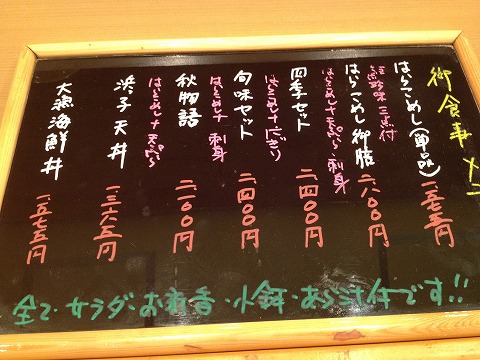 御食事メニ
はらこめし(単品)
一五七五円
はらこめし御膳
二八〇〇円
はらこめし+天ぷら、刺身
四季セット
二四〇〇円
はらこめし+にぎり
旬味セット
二四〇〇円
はらこめし+刺身
秋物語
二一〇〇円
はらこめし+天ぷら
浜子天丼
一三六五円
大漁海鮮丼
一五七五円
全て・サラダ・お新香・小鉢・あら汁付です!!